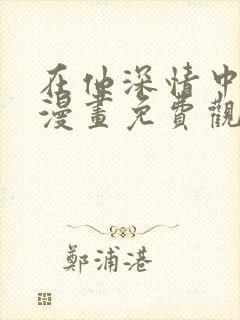 在他深情中
漫畫免費觀
鄭浦港